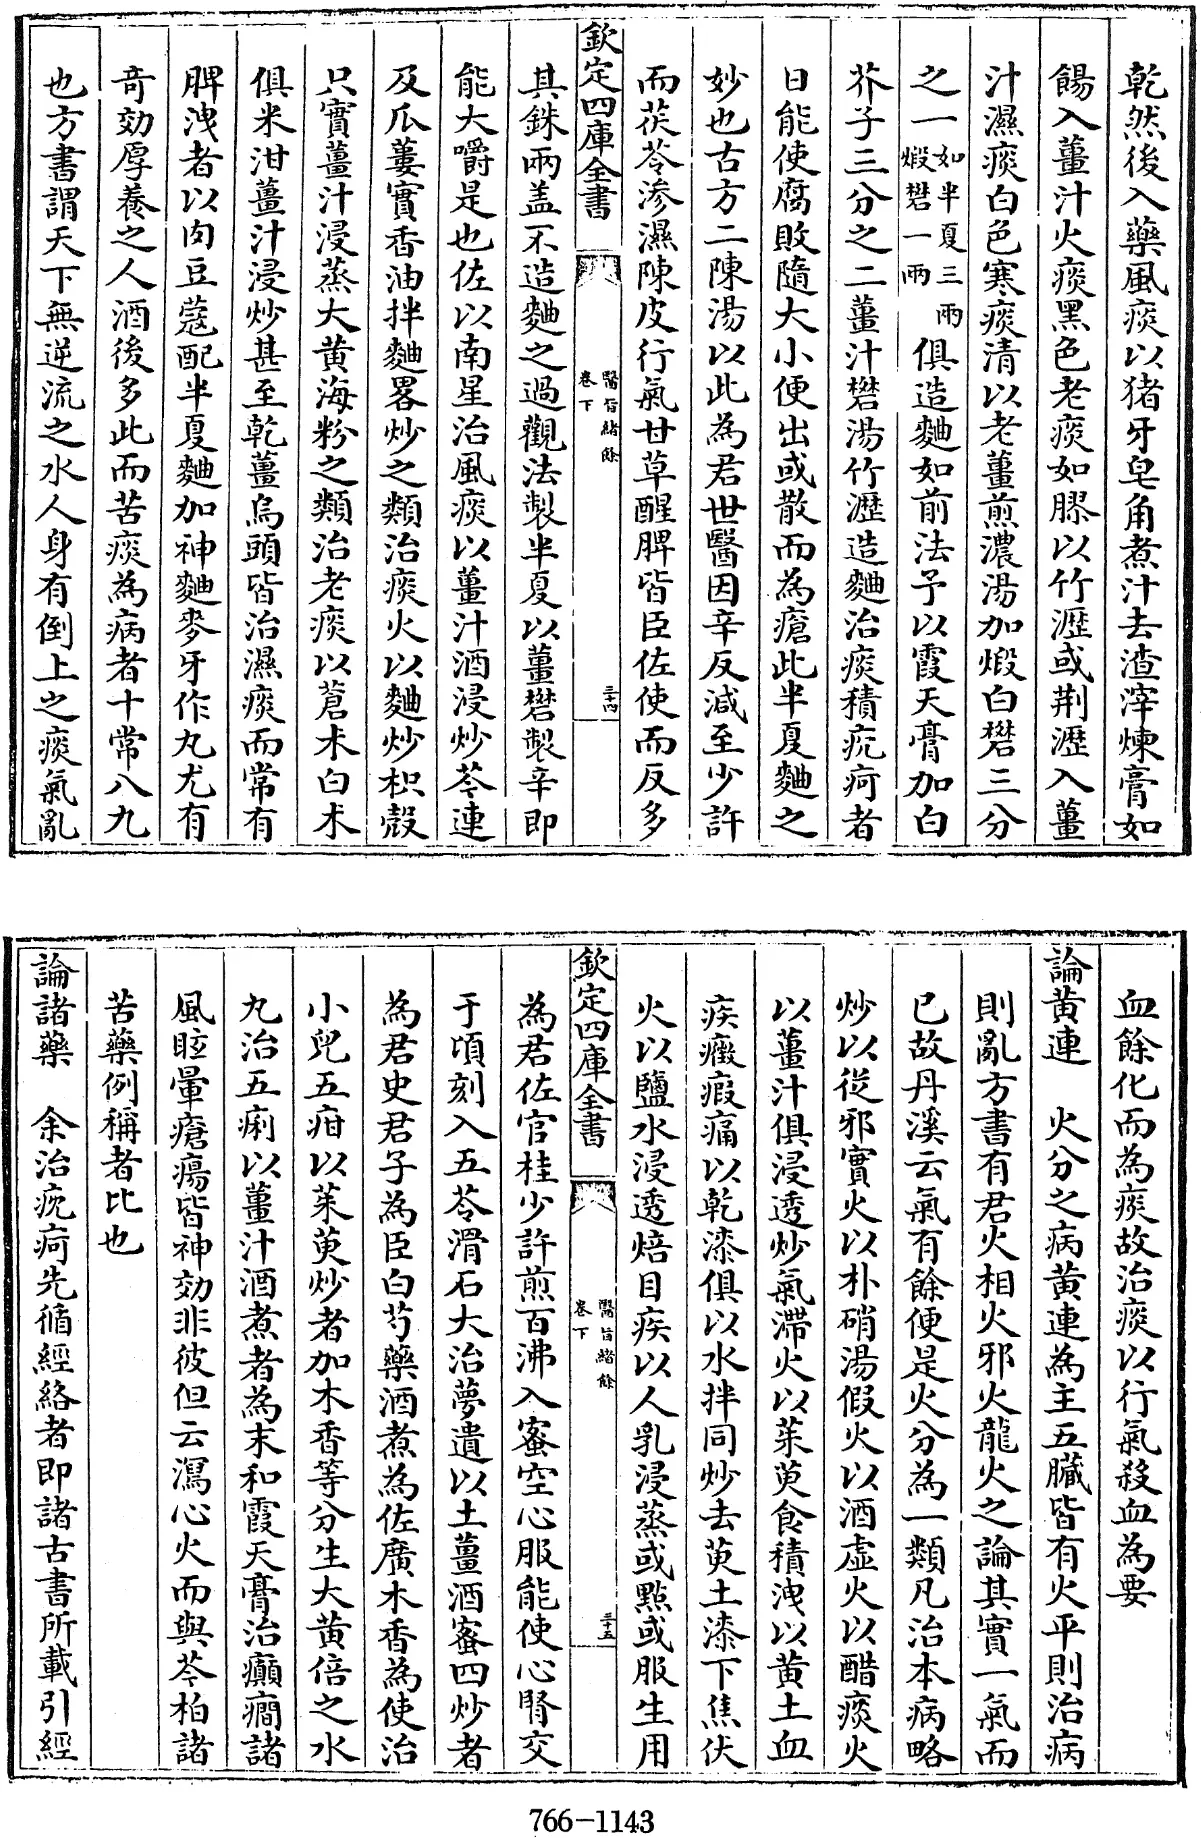 乾然後入藥風痰以猪牙皂角煮汁去渣滓煉膏如
餳入薑汁火痰黑色老痰如膠以竹瀝或荆瀝入薑
汁濕痰白色寒痰清以老薑煎濃湯加煅白礬三分
之一如半夏三兩煅礬一兩俱造麯如前法予以霞天膏加白
芥子三分之二薑汁礬湯竹瀝造麯治痰積疣疴者
日能使腐敗隨大小便出或散而為瘡此半夏麯之
妙也古方二陳湯以此為君世醫因辛反減至少許
而茯苓滲濕陳皮行氣甘草醒脾皆臣佐使而反多
欽定四庫全書
醫旨緒餘
卷下
三十四
其銖兩盖不造麯之過觀法製半夏以薑礬製辛即
能大嚼是也佐以南星治風痰以薑汁酒浸炒芩連
及瓜蔞實香油拌麯畧炒之類治痰火以麯炒枳殼
只實薑汁浸蒸大黄海粉之類治老痰以蒼术白术
俱米泔薑汁浸炒甚至乾薑烏頭皆治濕痰而常有
脾洩者以肉豆蔻配半夏麯加神麯麥牙作丸尤有
竒効厚養之人酒後多此而苦痰為病者十常八九
也方書謂天下無逆流之水人身有倒上之痰氣亂
血餘化而為痰故治痰以行氣殺血為要
論黄連　火分之病黄連為主五臟皆有火平則治病
則亂方書有君火相火邪火龍火之論其實一氣而
已故丹溪云氣有餘便是火分為一類凡治本病略
炒以從邪實火以朴硝湯假火以酒虛火以醋痰火
以薑汁俱浸透炒氣滯火以茱萸食積洩以黄土血
疾癥瘕痛以乾漆俱以水拌同炒去萸土漆下焦伏
火以鹽水浸透焙目疾以人乳浸蒸或點或服生用
欽定四庫全書
醫旨緒餘
卷下
三十五
為君佐官桂少許煎百沸入蜜空心服能使心腎交
于頃刻入五苓滑石大治夢遺以土薑酒蜜四炒者
為君史君子為臣白芍藥酒煮為佐廣木香為使治
小兒五疳以茱萸炒者加木香等分生大黄倍之水
丸治五痢以薑汁酒煮者為末和霞天膏治癲癎諸
風眩暈瘡瘍皆神効非彼但云瀉心火而與芩柏諸
苦藥例稱者比也
論諸藥　余治疣疴先循經絡者即諸古書所載引經
766-1143